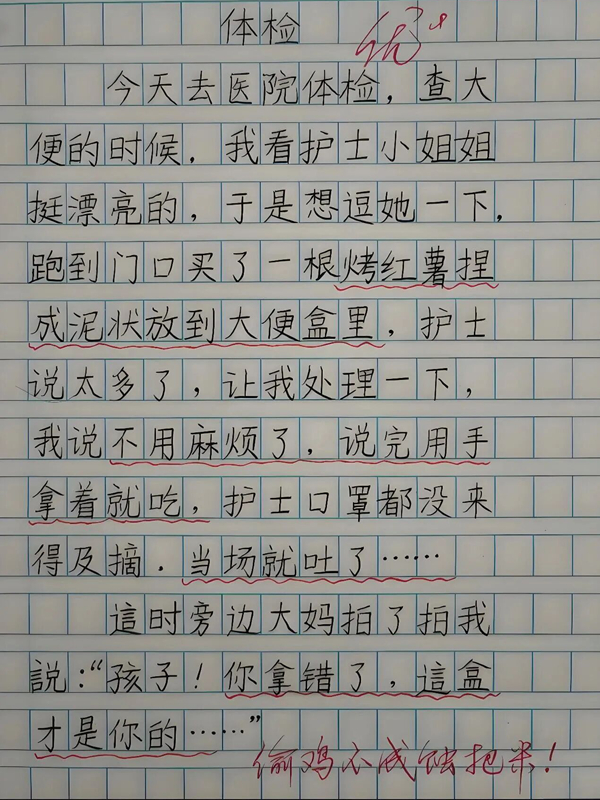 体检
优
今天去医院体检，查大
便的时候，我看护士小姐姐
挺漂亮的，于是想逗她一下，
跑到门口买了一根烤红薯捏
成泥状放到大便盒里，护士
说太多了，让我处理一下，
我说不用麻烦了，说完用手
拿着就吃，护士口罩都没来
得及摘．当场就吐了……
這时旁边大妈拍了拍我
説：“孩子！你拿错了，這盒
才是你的……”
偷鸡不成蚀把米！